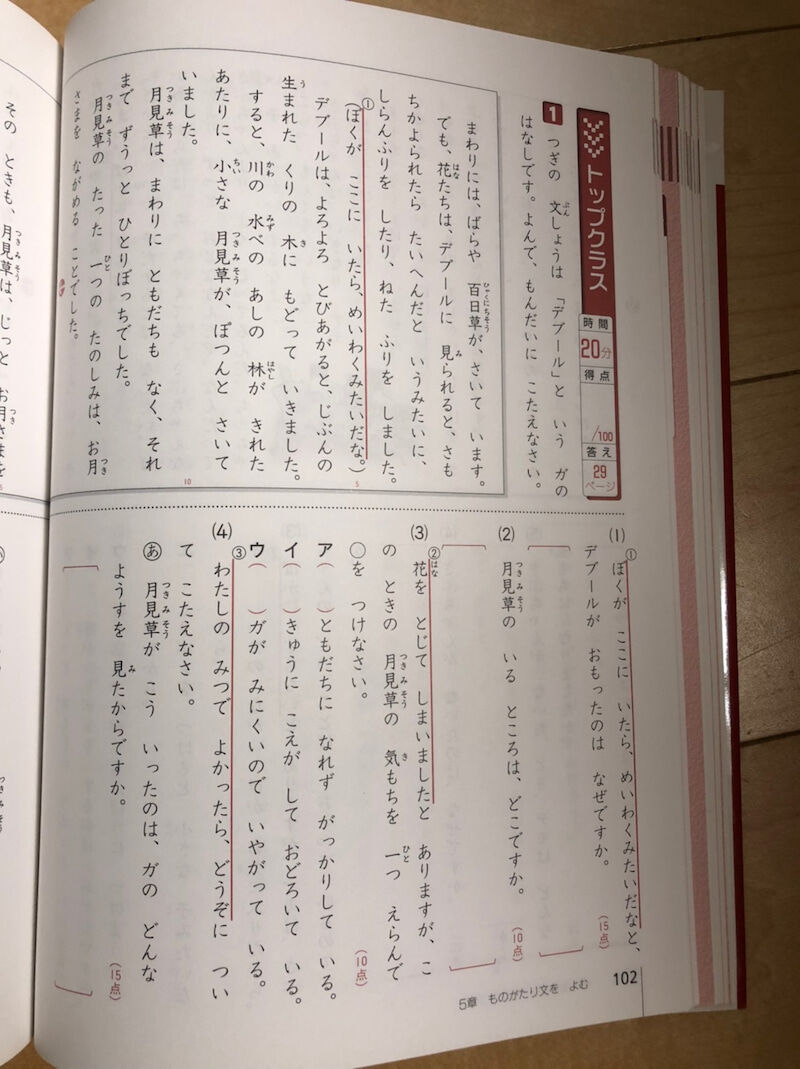 トップクラス
時間
20分
得点
/100
答え
29
ページ
1 つぎの 文しょうは 「デブール」と いう ガの
はなしです。よんで、もんだいに こたえなさい。
まわりには、ばらや 百日草が、さいて います。
でも、花たちは、デブールに 見られると、さも
ちかよられたら たいへんだと いうみたいに、
しらんふりを したり、ねた ふりを しました。
①(ぼくが ここに いたら、めいわくみたいだな。)
デブールは、よろよろ とびあがると、じぶんの
生まれた くりの 木に もどって いきました。
すると、川の 水べの あしの 林が きれた
あたりに、小さな 月見草が、ぽつんと さいて
いました。
月見草は、まわりに ともだちも なく、それ
まで ずうっと ひとりぼっちでした。
月見草の たった 一つの たのしみは、お月
さまを ながめる ことでした。
その ときも、月見草は、じっと お月さまを
(1) ①ぼくが ここに いたら、めいわくみたいだなと、
デブールが おもったのは なぜですか。
(15点)
(2) 月見草の いる ところは、どこですか。
(10点)
(3) ②花を とじて しまいましたと ありますが、こ
の ときの 月見草の 気もちを 一つ えらんで
○を つけなさい。
(10点)
ア( )ともだちに なれず がっかりして いる。
イ( )きゅうに こえが して おどろいて いる。
ウ( )ガが みにくいので いやがって いる。
(4) ③わたしの みつで よかったら、どうぞに つい
て こたえなさい。
あ 月見草が こう いったのは、ガの どんな
ようすを 見たからですか。
(15点)
102
5章 ものがたり文を よむ